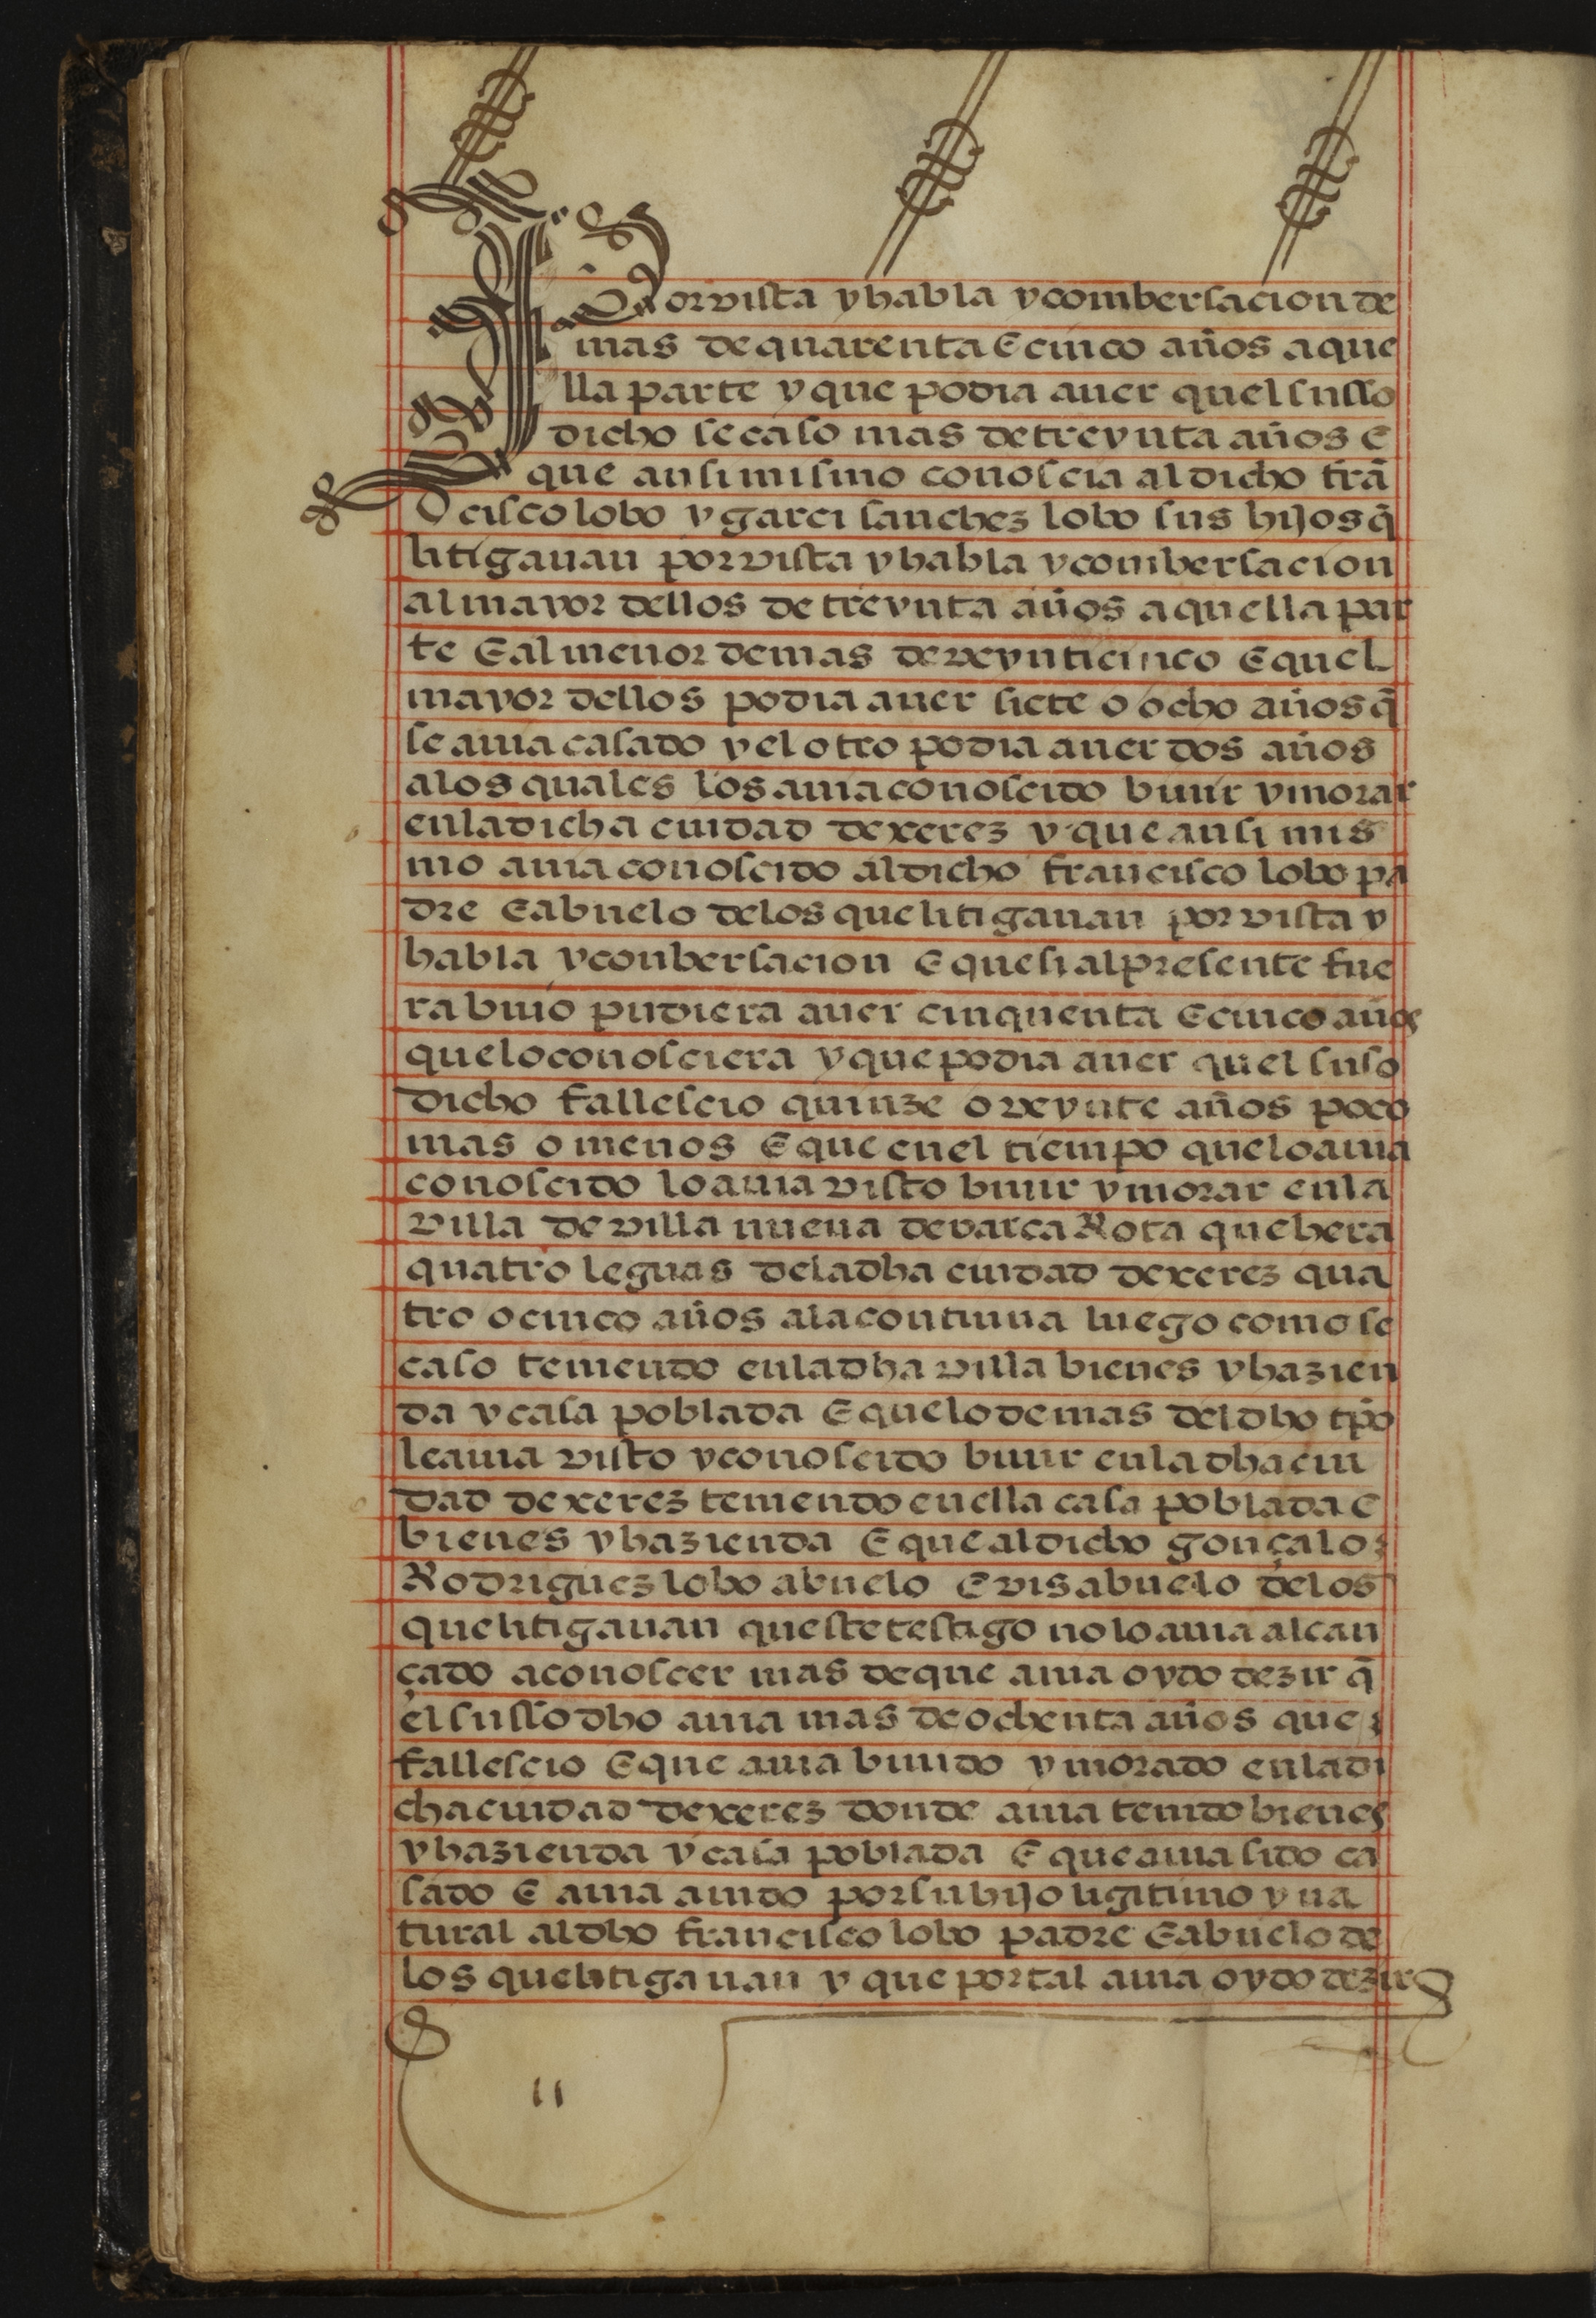 Por vista y habla y combersacion de
mas de quarenta E cinco años aque
lla parte y que podia aver quel susso
dicho se caso mas de treynta años e
que ansi mismo conoscia al dicho frā
cisco lobo y garci sanchez lobo sus hijos q̄
litigavan por vista y habla y combersacion
al mayor dellos de treynta años aquella par
te E al menor de mas de veynticinco E quel
mayor dellos podia aver siete o ocho años q̄
se avia casado y el otro podia aver dos años
a los quales los avia conoscido bivir y morar
en la dicha ciudad de xerez y que ansi mis
mo avia conoscido al dicho francisco lobo pa
dre E abuelo de los que litigavan por vista y
habla y conbersacion E que si al presente fue
ra bivo pudiera aver cinquenta E cinco años
que lo conosciera y que podia aver quel suso
dicho fallescio quinze o veynte años poco
mas o menos E que en el tiempo que lo avia
conoscido lo avia visto bivir y morar en la
villa de villa nueva de varca Rota que hera
quatro leguas de la dha ciudad de xerez qua
tro o cinco años a la continua luego como se
caso teniendo en la dha villa bienes y hazien
da y casa poblada E que lo demas del dho tpō
le avia visto y conoscido bivir en la dha ciu
dad de xerez teniendo en ella casa poblada e
bienes y hazienda E que al dicho gonçalo
Rodriguez lobo abuelo E visabuelo de los
que litigavan queste testigo no lo avia alcan
çado a conoscer mas de que avia oydo dezir q̄
el susso dho avia mas de ochenta años que
fallescio E que avia bivido y morado en la di
cha ciudad de xerez donde avia tenido bienes
y hazienda y casa poblada E que avia sido ca
sado E avia avido por su hijo ligitimo y na
tural al dho francisco lobo padre E abuelo de
los que litigavan y que por tal avia oydo dezir